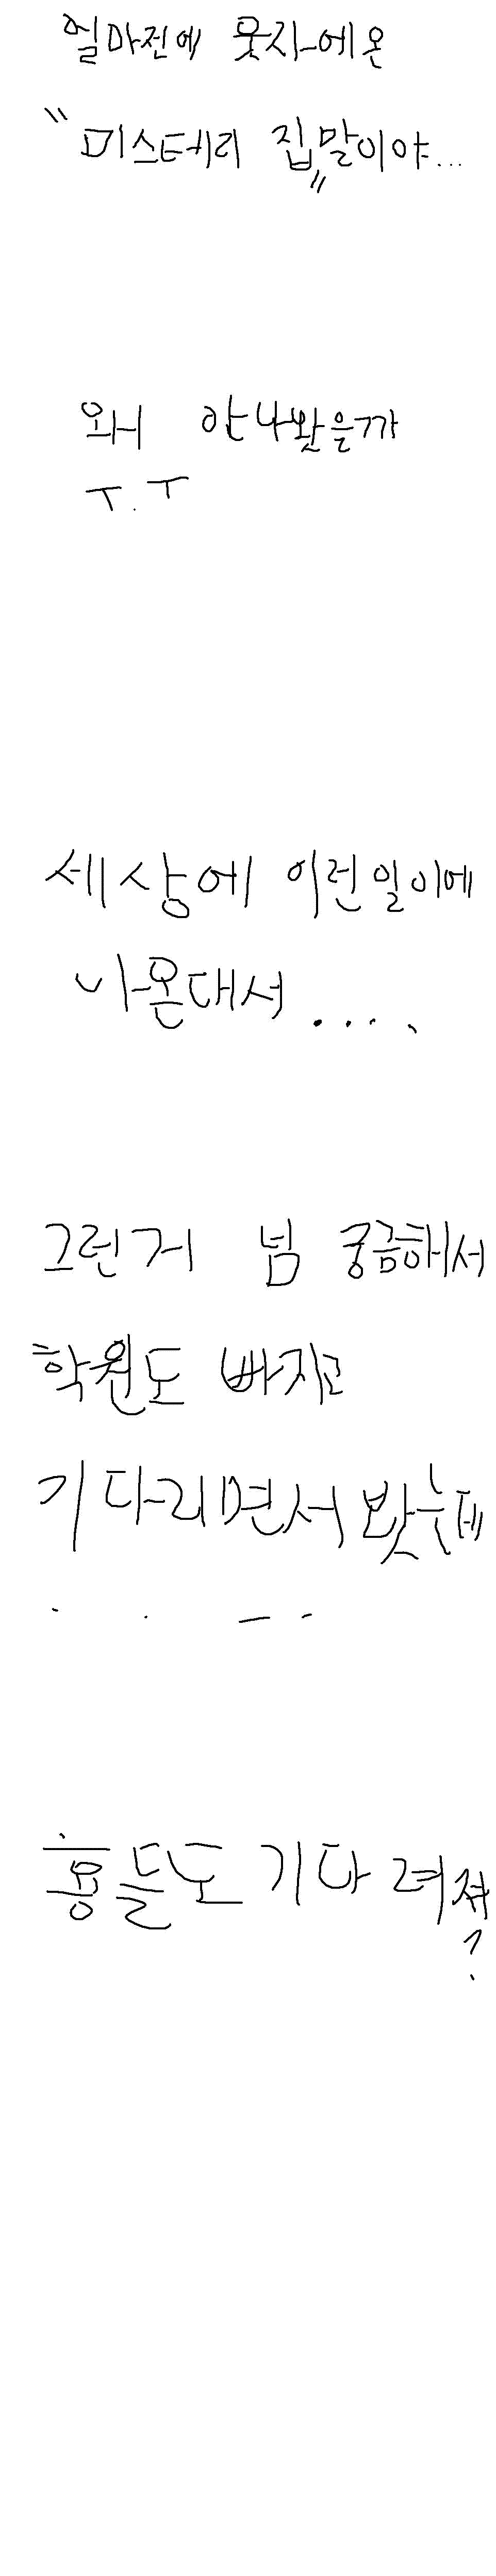 얼마전에 웃자에온
"미스테리 집"말이야...
왜 안나왔을까
ㅜ.ㅜ
세상에 이런일이에
나온대서....
그런거 넘 궁금해서
학원도 빠지고
기다리면서 봤는데
....
횽들도 기다려져?